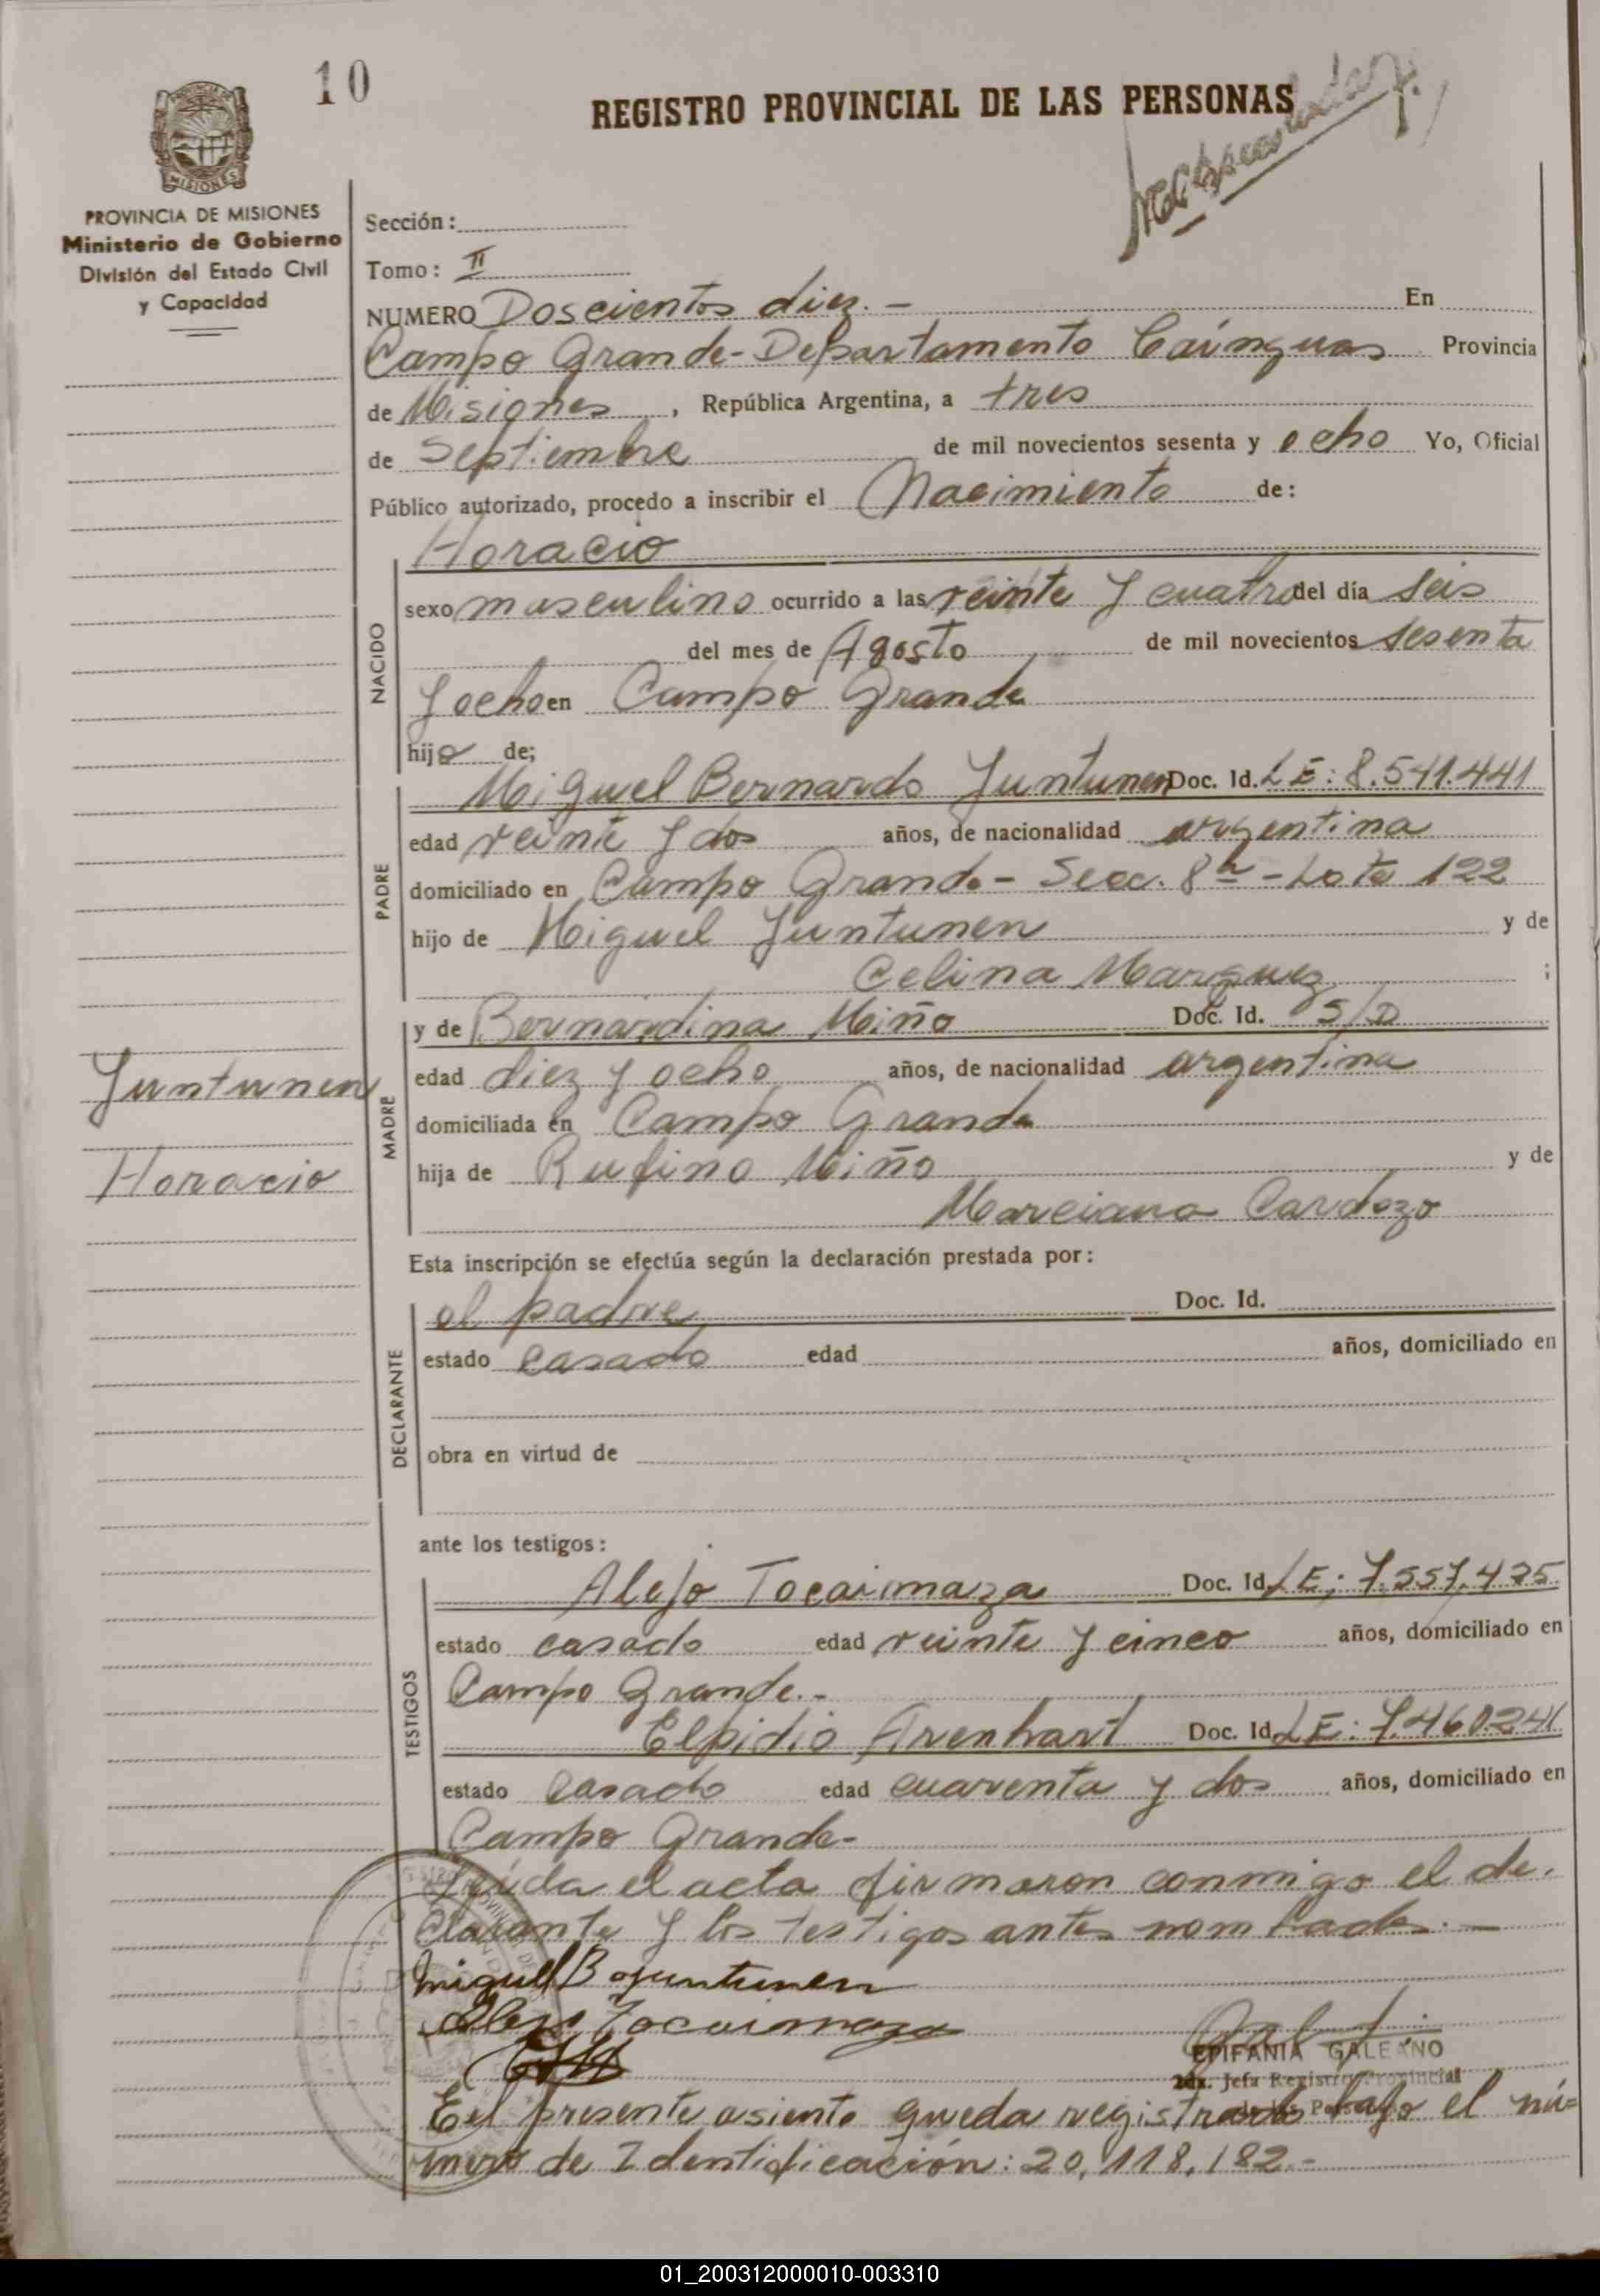 10
REGISTRO PROVINCIAL DE LAS PERSONAS
MISIONES
PROVINCIA DE MISIONES
Ministerio de Gobierno
División del Estado Civil
y Capacidad
Sección:
Tomo: II
NUMERO Doscientos diez.- En
Campo Grande-Departamento Cainguas Provincia
de Misiones, República Argentina, a tres
de Septiembre de mil novecientos sesenta y ocho Yo, Oficial
Público autorizado, procedo a inscribir el Nacimiento de:
Horacio
NACIDO
sexo masculino ocurrido a las veinte y cuatro del día seis
del mes de Agosto de mil novecientos sesenta
y ocho en Campo Grande
hijo de;
PADRE
Miguel Bernardo Juntunen Doc. Id. LE: 8.541.441
edad veinte y dos años, de nacionalidad argentina
domiciliado en Campo Grande - Secc. 8ª - Lote 122
hijo de Miguel Juntunen y de
Celina Marquez ;
MADRE
y de Bernardina Miño Doc. Id. S/D
edad diez y ocho años, de nacionalidad argentina
domiciliada en Campo Grande
hija de Rufino Miño y de
Marciana Cardozo
Juntunen
Horacio
Esta inscripción se efectúa según la declaración prestada por:
DECLARANTE
el padre Doc. Id.
estado casado edad años, domiciliado en
obra en virtud de
ante los testigos:
TESTIGOS
Alejo Tocaimaza Doc. Id LE; 7.557.435
estado casado edad veinte y cinco años, domiciliado en
Campo Grande.-
Elpidio Arenhart Doc. Id LE: 7.460.241
estado casado edad cuarenta y dos años, domiciliado en
Campo Grande-
Leída el acta firmaron conmigo el de-
clarante y los testigos antes nombrados.-
Miguel B Juntunen
Alejo Tocaimaza
EPIFANIA GALEANO
Jefa Registro Provincial
de las Personas
El presente asiento queda registrado bajo el nú=
mero de Identificación: 20,118,182.-
01_200312000010-003310